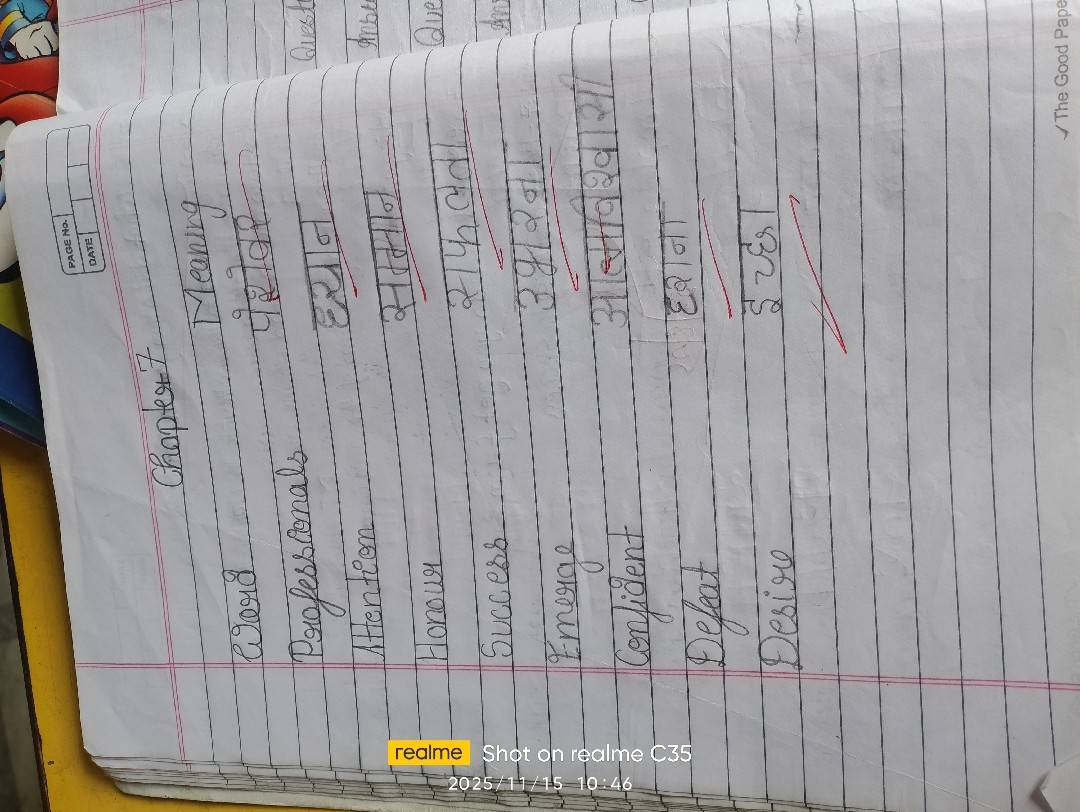 PAGE No.
DATE
Chapter 7
Word Meaning
Professionals पेशेवर
Attention ध्यान
Honour सम्मान
Success सफलता
Emerge उभरना
Confident आत्मविश्वाशी
Defeat हराना
Desire इच्छा
Quest
Answ
Que
Ans
✓The Good Pape
realme Shot on realme C35
2025/11/15 10:46